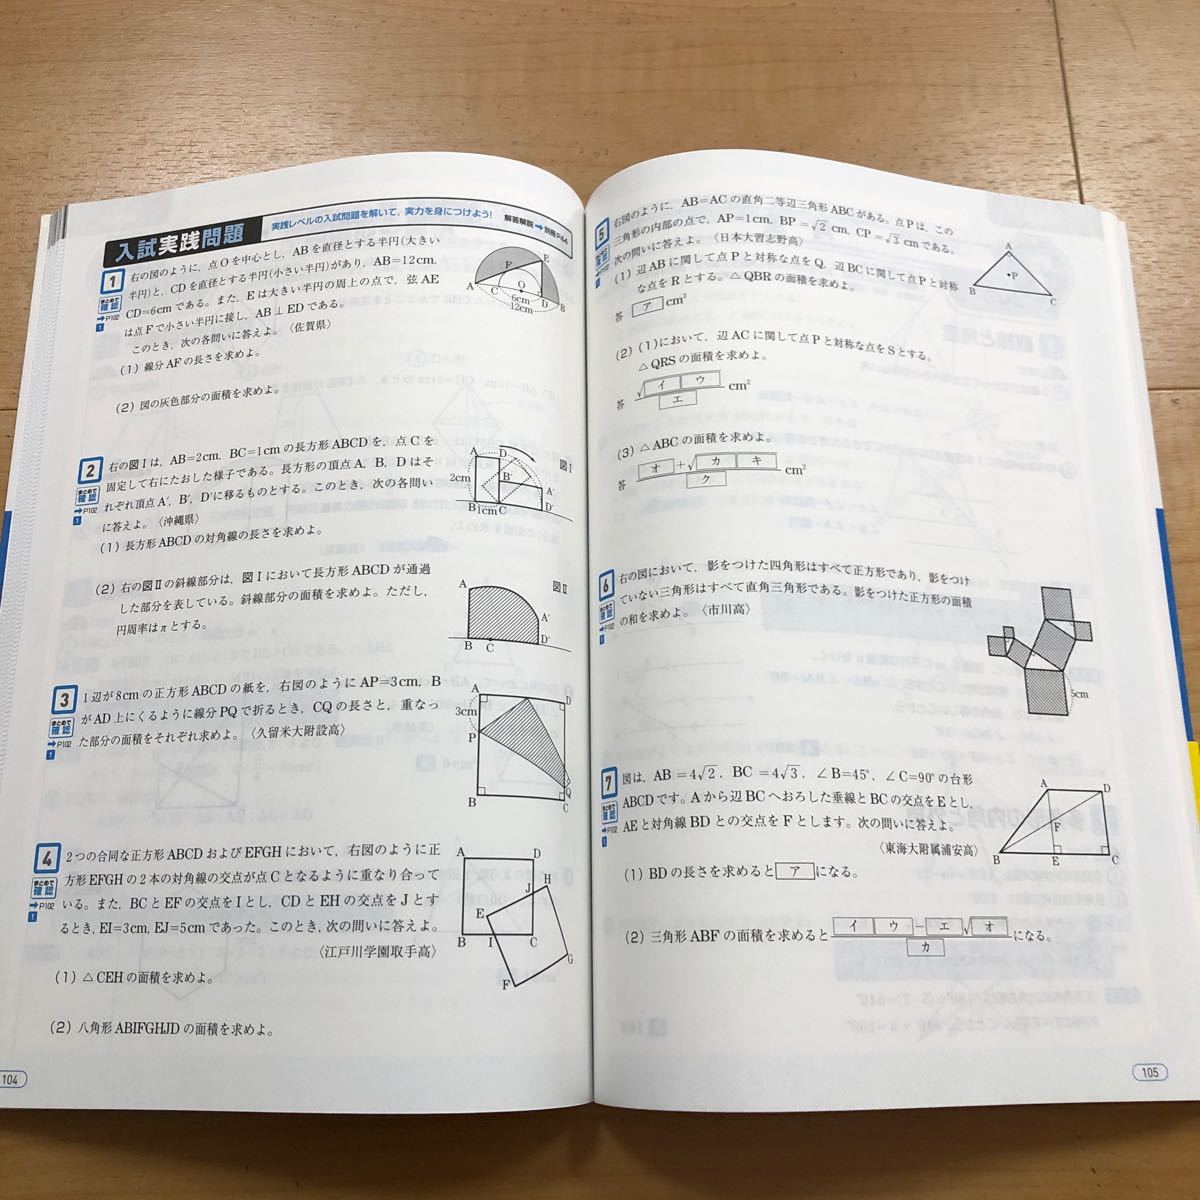 入試実践問題 実践レベルの入試問題を解いて，実力を身につけよう! 解答解説➡別冊P64
1 右の図のように，点Oを中心とし，ABを直径とする半円(大きい
半円)と，CDを直径とする半円(小さい半円)があり，AB=12cm，
CD=6cmである。また，Eは大きい半円の周上の点で，弦AE
は点Fで小さい半円に接し，AB⊥EDである。
このとき，次の各問いに答えよ。〈佐賀県〉
まとめて確認 ➡P102 1
(1) 線分AFの長さを求めよ。
(2) 図の灰色部分の面積を求めよ。
E F A C O D B 6cm 12cm
2 右の図Ⅰは，AB=2cm，BC=1cmの長方形ABCDを，点Cを
固定して右にたおした様子である。長方形の頂点A，B，Dはそ
れぞれ頂点A′，B′，D′に移るものとする。このとき，次の各問い
に答えよ。〈沖縄県〉
まとめて確認 ➡P102 1
(1) 長方形ABCDの対角線の長さを求めよ。
A D 図Ⅰ
2cm B′ A′
B 1cm C D′
(2) 右の図Ⅱの斜線部分は，図Ⅰにおいて長方形ABCDが通過
した部分を表している。斜線部分の面積を求めよ。ただし，
円周率はπとする。
A 図Ⅱ
A′
B C D′
3 1辺が8cmの正方形ABCDの紙を，右図のようにAP=3cm，B
がAD上にくるように線分PQで折るとき，CQの長さと，重なっ
た部分の面積をそれぞれ求めよ。〈久留米大附設高〉
まとめて確認 ➡P102 1
A D
3cm
P
Q
B C
4 2つの合同な正方形ABCDおよびEFGHにおいて，右図のように正
方形EFGHの2本の対角線の交点が点Cとなるように重なり合って
いる。また，BCとEFの交点をIとし，CDとEHの交点をJとす
るとき，EI=3cm，EJ=5cmであった。このとき，次の問いに答えよ。
〈江戸川学園取手高〉
まとめて確認 ➡P102 1
(1) △CEHの面積を求めよ。
(2) 八角形ABIFGHJDの面積を求めよ。
A D
H
J
E
B I C
G
F
104
5 右図のように，AB=ACの直角二等辺三角形ABCがある。点Pは，この
三角形の内部の点で，AP=1cm，BP=√2cm，CP=√3cmである。
次の問いに答えよ。〈日本大習志野高〉
まとめて確認 ➡P102 1
(1) 辺ABに関して点Pと対称な点をQ，辺BCに関して点Pと対称
な点をRとする。△QBRの面積を求めよ。
答 ア cm²
A
P
B C
(2) (1)において，辺ACに関して点Pと対称な点をSとする。
△QRSの面積を求めよ。
答 √イウ/エ cm²
(3) △ABCの面積を求めよ。
答 オ+√カキ/ク cm²
6 右の図において，影をつけた四角形はすべて正方形であり，影をつけ
ていない三角形はすべて直角三角形である。影をつけた正方形の面積
の和を求めよ。〈市川高〉
まとめて確認 ➡P102 1
5cm
7 図は，AB=4√2，BC=4√3，∠B=45°，∠C=90°の台形
ABCDです。Aから辺BCへおろした垂線とBCの交点をEとし，
AEと対角線BDとの交点をFとします。次の問いに答えよ。
〈東海大附属浦安高〉
まとめて確認 ➡P102 1
(1) BDの長さを求めると ア になる。
(2) 三角形ABFの面積を求めると イウ-エ√オ/カ になる。
A D
F
B E C
105